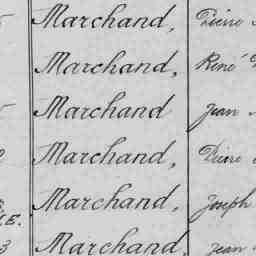 Marchand, Pierre
Marchand, René
Marchand Jean
Marchand, Pierre
Marchand, Joseph
Marchand, Jean